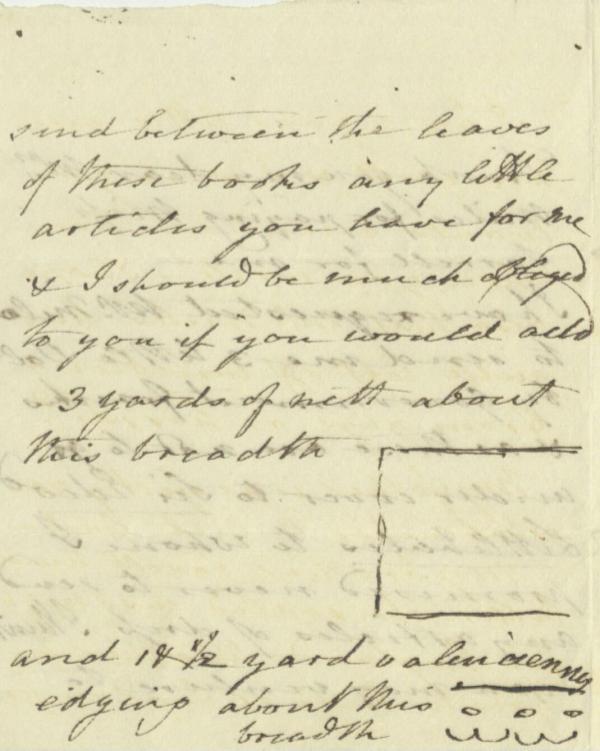 send between the leaves
of these books any little
articles you have for me
& I should be much obliged
to you if you would add
3 yards of nett about
this breadth
and 1& 1/2 yard valencienney
edging about this
breadth